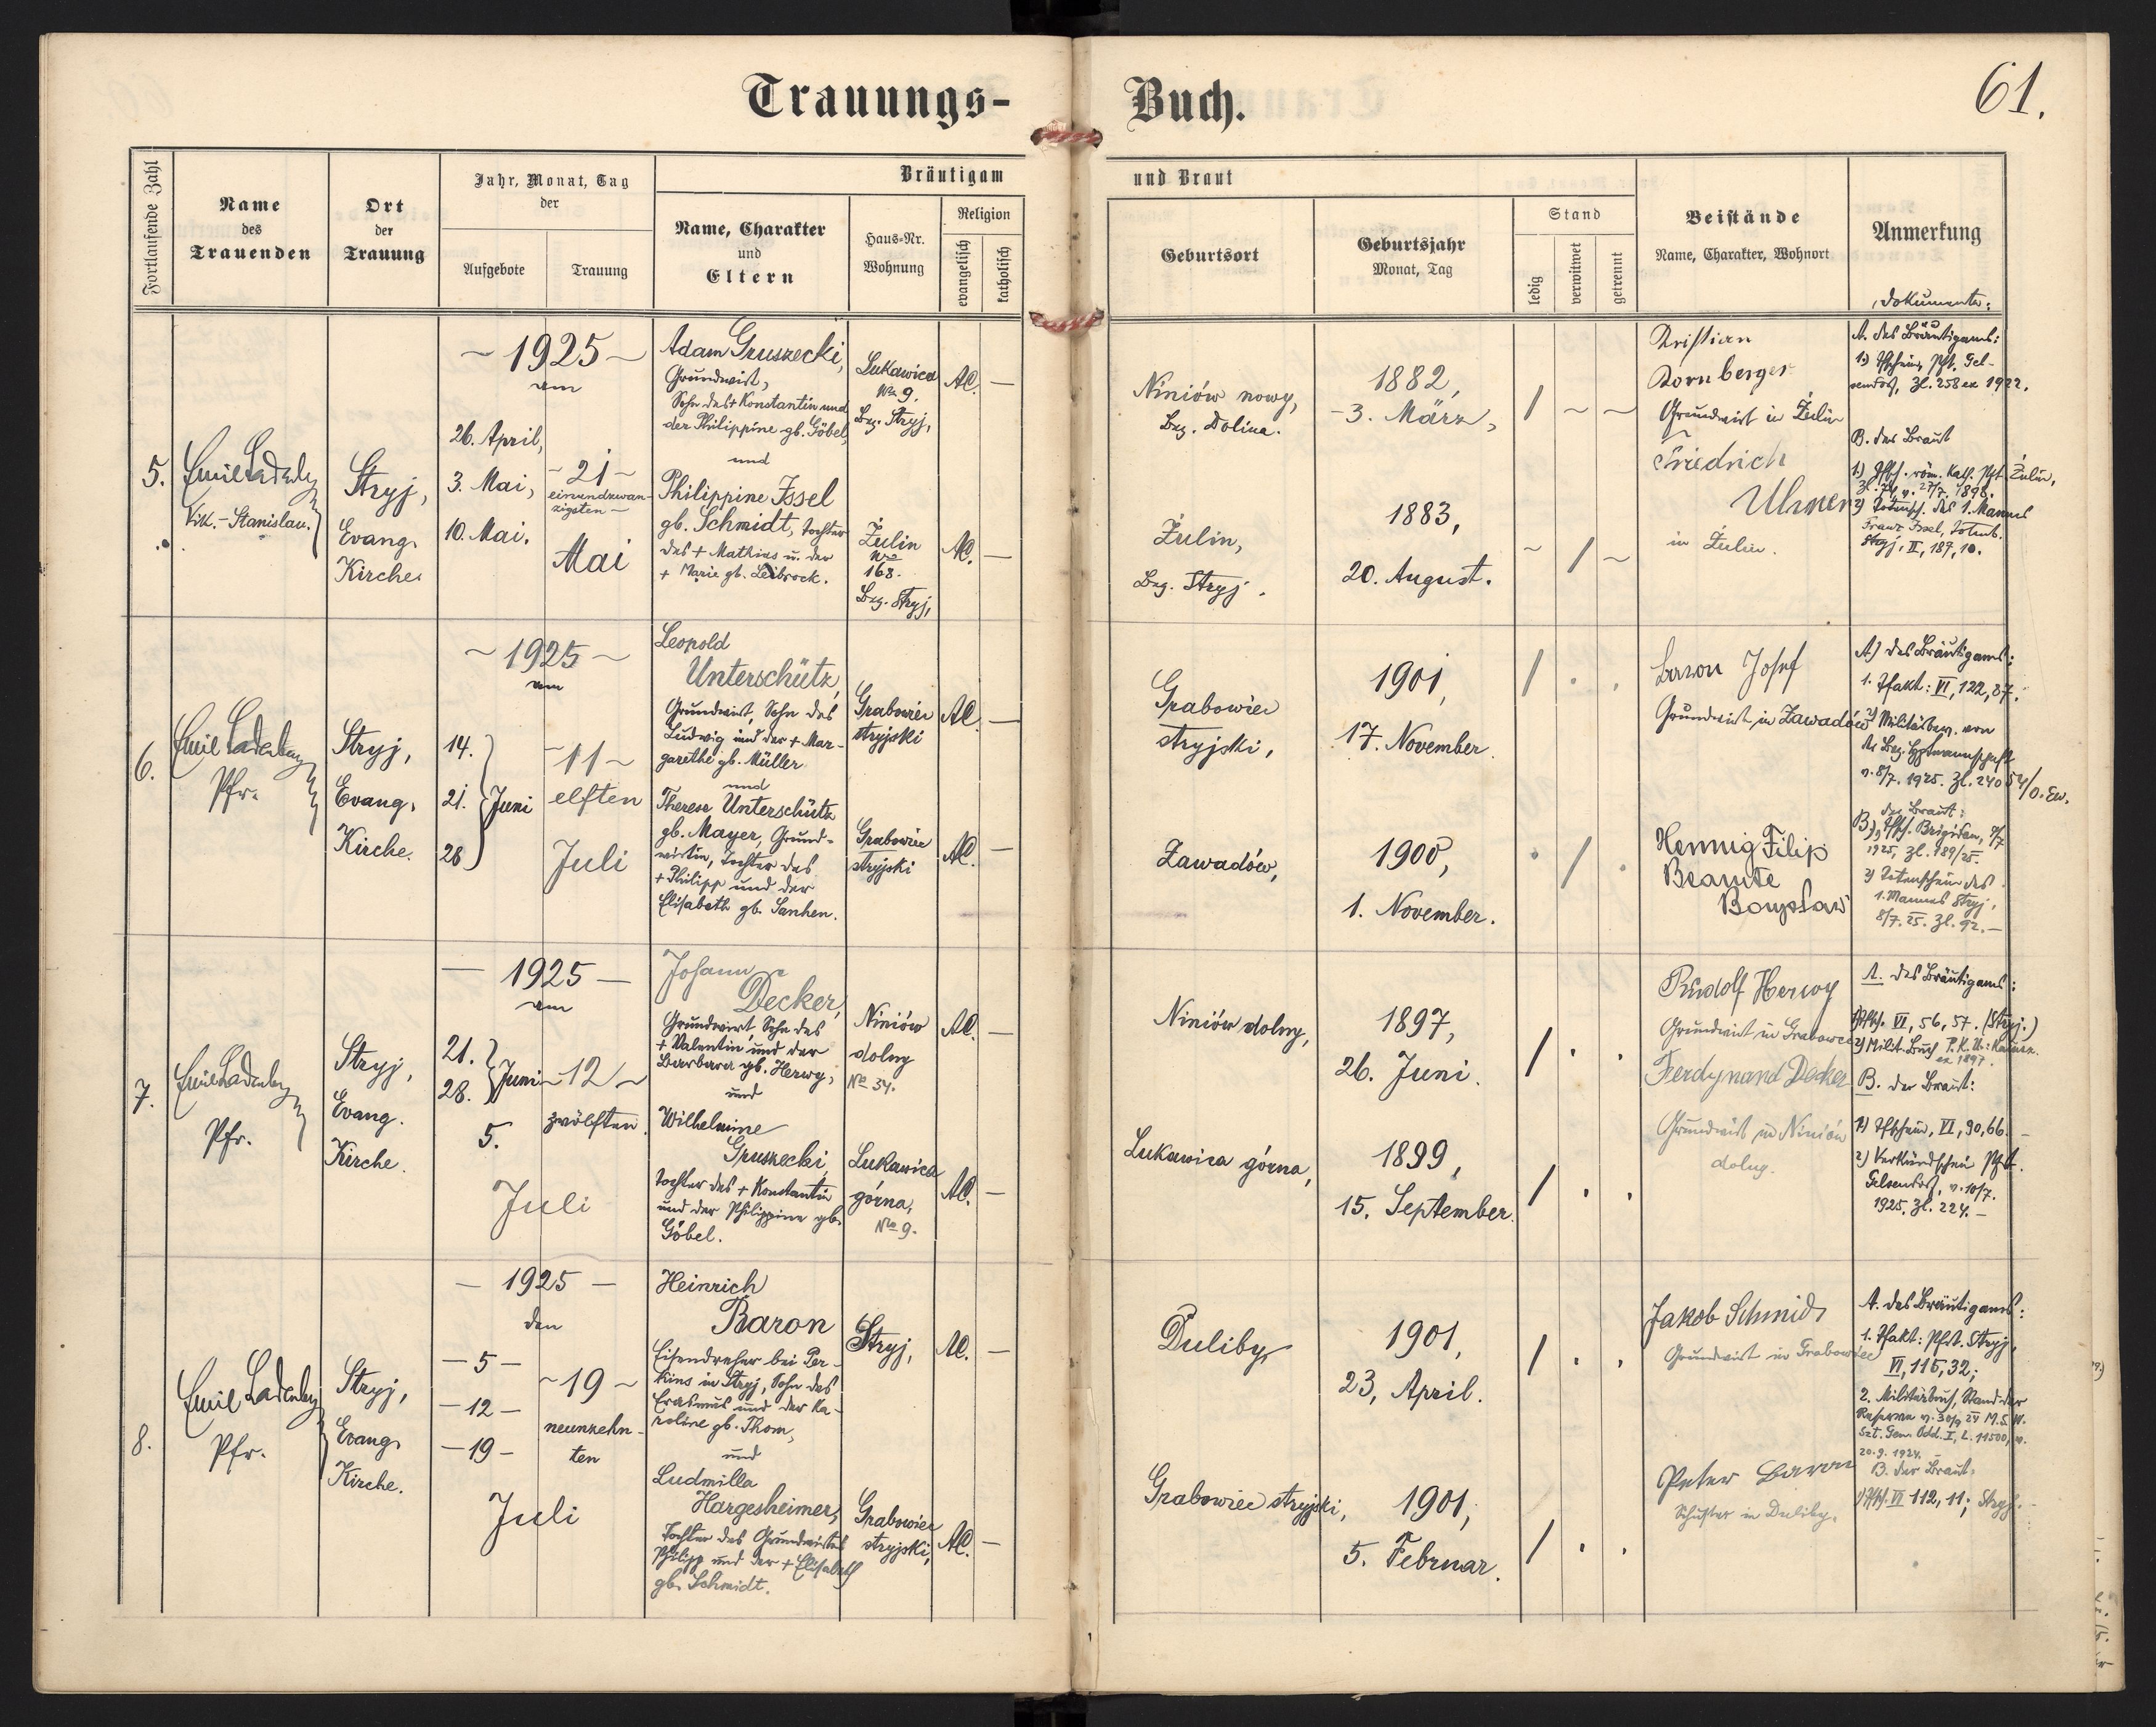 Trauungs-
Buch.
61.
Fortlaufende Zahl
Name
des
Trauenden
Ort
der
Trauung
Jahr, Monat, Tag
der
Aufgebote
Trauung
Bräutigam
Name, Charakter
und
Eltern
Haus-Nr.
Wohnung
Religion
evangelisch
katholisch
und Braut
Geburtsort
Geburtsjahr
Monat, Tag
Stand
ledig
verwitwet
getrennt
Beistände
Name, Charakter, Wohnort
Anmerkung
Dokumente:
5.
Emil Ladenberger
Vik.-Stanislau.
Stryj,
Evang.
Kirche.
~ 1925 ~
am
26. April,
3. Mai,
10. Mai.
~ 21 ~
einundzwan-
zigsten ~
Mai
Adam Gruszecki,
Grundwirt,
Sohn des + Konstantin und
der Philippine gb. Göbel,
und
Philippine Issel
gb. Schmidt, Tochter
des + Mathias u. der
+ Marie gb. Leibrock.
Lukawica
No 9.
Bez. Stryj,
AC. —
Żulin
No
168.
Bez. Stryj,
AC. —
Niniów nowy,
Bez. Dolina.
1882,
3. März,
/ ~ ~
Żulin,
Bez. Stryj.
1883,
20. August.
~ / ~
Kristian
Dornberger
Grundwirt in Żulin
Friedrich
Uhmer
in Żulin.
A. des Bräutigams:
1.) Tfschein, Pft. Gel-
sendorf, Zl. 258 ex 1922.
B. der Braut
1.) Tfsch. röm. Kath. Pft. Żulin,
27/7. 1896.
2) Totensch. des 1. Mannes
Franz Issel, Totenb.
Stryj, II, 189, 10.
6.
Emil Ladenberger
Pfr.
Stryj,
Evang.
Kirche.
~ 1925 ~
am
14.
21. Juni
28
~ 11 ~
elften
Juli
Leopold
Unterschütz,
Grundwirt, Sohn des
Ludwig und der + Mar-
garethe gb. Müller
und
Therese Unterschütz
gb. Mayer, Grund-
wirtin, Tochter des
+ Philipp und der
Elisabeth gb. Sanhen.
Grabowiec
stryjski
AC. —
Grabowiec
stryjski
AC. —
Grabowiec
stryjski,
1901,
17. November.
/ . .
Zawadów,
1900,
1. November.
. / .
Baron Josef
Grundwirt in Zawadów
Hennig Filip
Beamte
Borysław
A) des Bräutigams:
1. Tfakt: VI, 122, 87.
2) Militärbew. von
der Bez. Hptmannschaft
v. 8/7. 1925. Zl. 24054/O. Ew.
B) der Braut:
1) Tfsch. Brigidau, 7/7
1925, Zl. 189/25.
2) Totenschein des
1. Mannes Stryj,
8/7. 25. Zl. 92. —
7.
Emil Ladenberger
Pfr.
Stryj,
Evang.
Kirche.
— 1925 —
am
21.
28. Juni
5.
~ 12 ~
zwölften.
Juli
Johann
Decker,
Grundwirt, Sohn des
+ Valentin und der
Barbara gb. Herwy,
und
Wilhelmine
Gruszecki,
Tochter des + Konstantin
und der Philippine gb.
Göbel.
Niniów
dolny
No 34.
AC. —
Lukawica
górna,
No 9.
AC. —
Niniów dolny,
1897,
26. Juni.
/ . .
Lukawica górna,
1899,
15. September.
/ . .
Rudolf Herwy
Grundwirt in Grabowiec
Ferdynand Decker
Grundwirt in Niniów
dolny.
A. des Bräutigams:
1) Tfsch. VI, 56, 57. (Stryj.)
2) Milit. Buch P.K.U.
ex 1897.
B. der Braut:
1) Tfschein, VI, 90, 66. —
2) Verkündschein Pft.
Gelsendorf, v. 10/7.
1925, Zl. 224. —
8.
Emil Ladenberger
Pfr.
Stryj,
Evang.
Kirche.
— 1925 —
den
— 5 —
— 12 —
— 19 —
~ 19 ~
neunzehn-
ten
Juli
Heinrich
Baron
Eisendreher bei Per-
kins in Stryj, Sohn des
Erasmus und der Ka-
roline gb. Thom,
und
Ludmilla
Hargesheimer,
Tochter des Grundwirtes
Philipp und der + Elisabeth
gb. Schmidt.
Stryj,
AC. —
Grabowiec
stryjski,
AC. —
Duliby
1901,
23, April.
/ . .
Grabowiec stryjski,
1901,
5. Februar.
/ . .
Jakob Schmid
Grundwirt in Grabowiec
Peter Baron
Schuster in Duliby.
A. des Bräutigams:
1. Tfakt: Pft. Stryj,
VI, 115, 32;
2. Militärbuch, Stand der
Reserve v. 30/9 24 M.S.W.
Szt. Gen. Odd. I, L. 11500, v.
20. 9. 1924. —
B. der Braut:
1) Tfsch. VI 112, 11; Stryj. —